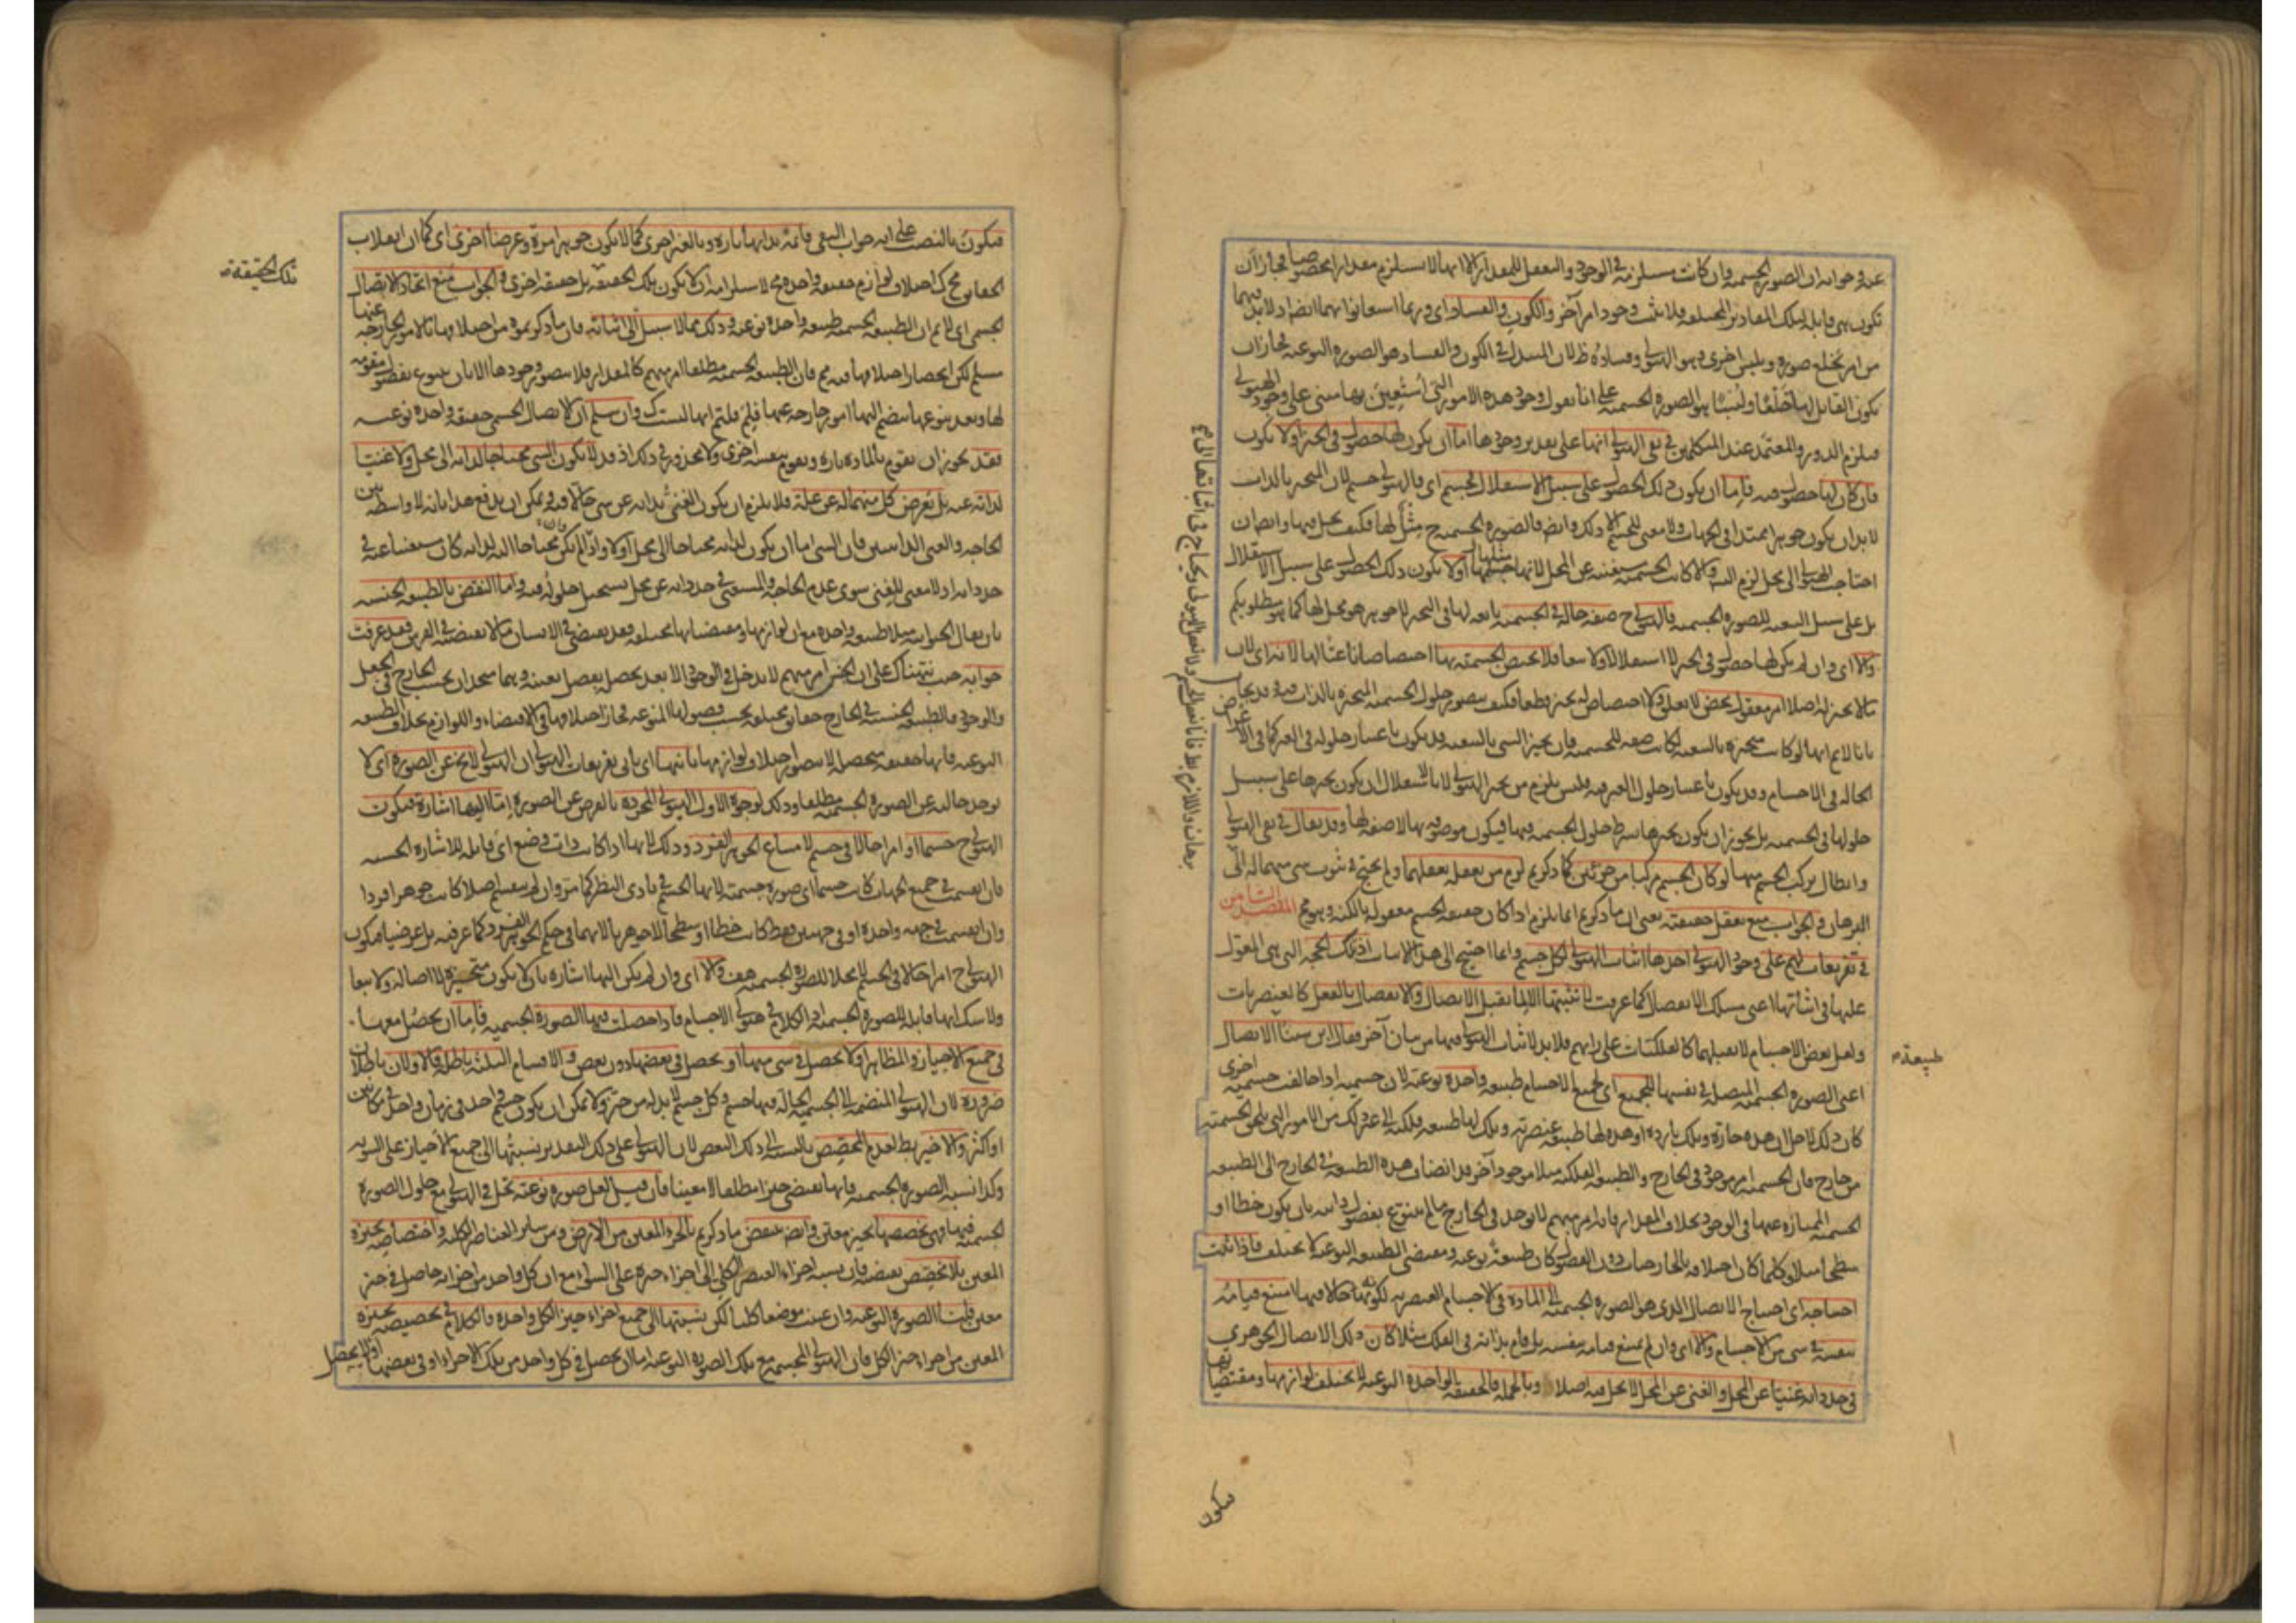 عنه وجوابه ان الصورة الجسمية وان كانت مستلزمة في الوجود والتعقل للمقدار الا انها لا تستلزم مقدارا مخصوصا فجاز ان
تكون هي قابلة لتلك المقادير المختلفة فلا يثبت وجود امر آخر والكون والفساد اى وربما استعانوا بهما ايضا اذ لا بد فيهما
من امر يخلع صورة ويلبس اخرى وهو الهيولى وفساده ظ لان المتبدل في الكون والفساد هو الصورة النوعية فجاز ان
يكون القابل لها خلعا ولبسا هو الصورة الجسمية على انا نقول وجود هذه الامور التي استعين بها مبنى على وجود الهيولى
فيلزم الدور والمعتمد عند المتكلمين في نفى الهيولى انها على تقدير وجودها اما ان يكون لها حصول في الحيز او لا يكون
فان كان لها حصول فيه فاما ان يكون ذلك الحصول على سبيل الاستقلال فجسم اى فالهيولى جسم لان المتحيز بالذات
لا بد ان يكون جوهرا ممتدا في الجهات ولا معنى للجسم الا ذلك وايضا فالصورة الجسمية ح مثل لها فكيف يحل فيها وايضا ان
احتاجت الهيولى الى محل لزم التس والا كانت الجسمية مستغنية عن المحل لانها مثلها او لا يكون ذلك الحصول على سبيل الاستقلال
بل على سبيل التبعية للصورة الجسمية فالهيولى ح صفة حالة في الجسمية تابعة لها في التحيز لا جوهر هو محل لها كما هو مطلوبكم
والا اى وان لم يكن لها حصول في الحيز لا استقلالا ولا تبعا فلا يختص الجسمية بها اختصاصا ناعتا لها لانه اى لان
ما لا تحيز له اصلا امر معقول محض لا تعلق ولا اختصاص له بحيز قطعا فكيف يتصور حلول الجسمية المتحيزة بالذات فيه وقد يجاب
بانا لا نم انها لو كانت متحيزة بالتبعية لكانت صفة للجسمية فان تحيز الشي بالتبعية قد يكون باعتبار حلوله في الغير كما في الاعراض
الحالة في الاجسام وقد يكون باعتبار حلول الغير فيه فليس يلزم من تحيز الهيولى لا بالاستقلال ان يكون تحيزها على سبيل
حلولها في الجسمية بل يجوز ان يكون تحيزها بشرط حلول الجسمية فيها فيكون موصوفة بها لا صفة لها وقد يقال في نفى الهيولى
وابطال تركب الجسم منها لو كان الجسم مركبا من جزئين كما ذكرتم لزم من تعقله تعقلهما ولم يحتج في ثبوت شى منهما له الى
البرهان والجواب منع تعقل حقيقته يعنى ان ما ذكرتم انما يلزم اذا كان حقيقة الجسم معقولة بالكنه وهو مم المقصد الثامن
في تفريعات لهم على وجود الهيولى احدها اثبات الهيولى لكل جسم وانما احتيج الى هذا الاثبات اذ تلك الحجة التي هى المعول
عليها في اثباتها اعنى مسلك الانفصال كما عرفت لا تثبتها الا لما يقبل الاتصال والانفصال بالفعل كالعنصريات
ولعل بعض الاجسام لا يقبلهما كالفلكيات على رايهم فلا بد لاثبات الهيولى فيها من بيان آخر فقال ابن سينا الاتصال
اعنى الصورة الجسمية المتصلة في نفسها للجميع اى لجميع الاجسام طبيعة واحدة نوعية لان جسمية اذا خالفت جسمية اخرى
كان ذلك لاجل ان هذه حارة وتلك باردة او هذه لها طبيعة عنصرية وتلك لها طبيعة فلكية الى غير ذلك من الامور التي تلحق الجسمية
من خارج فان الجسمية امر موجود في الخارج والطبيعة الفلكية مثلا موجود آخر قد انضاف هذه الطبيعة في الخارج الى الطبيعة
الجسمية الممتازة عنها في الوجود بخلاف المقدار فانه امر مبهم لا يوجد في الخارج ما لم يتنوع بفصول ذاتية بان يكون خطا او
سطحا مثلا وكلما كان اختلافه بالخارجات دون الفصول كان طبيعة نوعية ومقتضى الطبيعة النوعية لا يختلف فاذا ثبت
احتياجه اى احتياج الاتصال الذى هو الصورة الجسمية الى المادة في الاجسام العنصرية لكونها حالا فيها امتنع قيامه
بنفسه في شى من الاجسام والا اى وان لم يمتنع قيامه بنفسه بل قام بذاته في الفلك مثلا كان ذلك الاتصال الجوهرى
في حد ذاته غنيا عن المحل والغنى عن المحل لا يحل فيه اصلا وبالجملة فالحقيقة الواحدة النوعية لا تختلف لوازمها ومقتضياتها
طبيعة م
فيكون
فيكون بالنصب على انه جواب النفى قائمة بذاتها تارة وبالغير اخرى كما لا يكون جوهرا مرة وعرضا اخرى اى كما ان انقلاب
الحقايق مح كذا اختلاف لوازم حقيقة واحدة مح لاستلزامه ان لا تكون تلك الحقيقة بل حقيقة اخرى والجواب منع اتحاد الاتصال
الجسمى اى لا نم ان الطبيعة الجسمية طبيعة واحدة نوعية وذلك مما لا سبيل الى اثباته فان ما ذكرتموه من اختلافها بالامور الخارجة عنها
مسلم لكن انحصار اختلافها فيه مم فان الطبيعة الجسمية مطلقا امر مبهم كالمقدار فلا يتصور وجودها الا بان يتنوع بفصول مقومة
لها وبعد تنوعها ينضم اليها امور خارجة عنها فلم قلتم انها ليست كذلك وان سلم ان الاتصال الجسمى حقيقة واحدة نوعية
فقد يجوز ان تقوم بالمادة تارة وتقوم بنفسه اخرى ولا محذور في ذلك اذ قد لا يكون الشى محتاجا لذاته الى محل ولا غنيا
لذاته عنه بل يعرض كل منهما له عن علة فلا يلزم ان يكون الغنى بذاته عن شى حالا فيه ويمكن ان يدفع هذا بانه لا واسطة بين
الحاجة والغنى الذاتيين فان الشى اما ان يكون لذاته محتاجا الى محل او لا واذا لم يكن محتاجا اليه لذاته كان مستغنيا عنه في
حد ذاته اذ لا معنى للغنى سوى عدم الحاجة والمستغنى في حد ذاته عن محل يستحيل حلوله فيه واما النقض بالطبيعة الجنسية
بان يقال الحيوانية مثلا طبيعة واحدة مع ان لوازمها ومقتضياتها مختلفة فقد يقتضى في الانسان ما لا يقتضيه في الفرس فقد عرفت
جوابه حيث نبهناك على ان الجنس امر مبهم لا يدخل في الوجود الا بعد تحصله بفصل يعينه وهما متحدان بحسب الخارج في الجعل
والوجود فالطبيعة الجنسية في الخارج حقايق مختلفة بحسب فصولها المنوعة فجاز اختلافها في الاقتضاء واللوازم بخلاف الطبيعة
النوعية فانها حقيقة متحصلة لا يتصور اختلاف لوازمها ثانيها اى ثانى تفريعات الهيولى ان الهيولى لا تخلو عن الصورة اى لا
توجد خالية عن الصورة الجسمية مطلقا وذلك لوجوه الاول الهيولى المجردة بالفرض عن الصورة اما اليها اشارة فيكون
الهيولى ح جسما او امرا حالا في جسم لامتناع الجوهر الفرد وذلك لانها اذا كانت ذات وضع اى قابلة للاشارة الحسية
فان انقسمت في جميع الجهات كانت جسما اى صورة جسمية لانها الجسم في بادى النظر كما مر وان لم ينقسم اصلا كانت جوهرا فردا
وان انقسمت في جهة واحدة او في جهتين فقط كانت خطا او سطحا لا جوهريا لانهما في حكم الجوهر الفرد كما عرفته بل عرضيا فيكون
الهيولى ح امرا حالا في الجسم لا محلا للصورة الجسمية هف والا اى وان لم يكن اليها اشارة بان لا يكون متحيزة لا اصالة ولا تبعا
ولا شك انها قابلة للصورة الجسمية اذ الكلام في هيولى الاجسام فاذا حصلت فيها الصورة الجسمية فاما ان يحصل معها
في جميع الاحياز والمظاهر او لا تحصل في شى منها او تحصل في بعضها دون بعض والاقسام الثلثة باطلة فالاولان باطلان
ضرورة لان الهيولى المنضمة الى الجسمية الحالة فيها جسم وكل جسم لا بد له من حيز ولا يمكن ان يكون جسم واحد في زمان واحد في مكانين
او اكثر والاخير بط لعدم المخصص بالنسبة الى ذلك البعض لان الهيولى على ذلك التقدير نسبتها الى جميع الاحياز على السوية
وكذا نسبة الصورة الجسمية فانها تقتضى حيزا مطلقا لا معينا فان قيل لعل صورة نوعية تحل في الهيولى مع حلول الصورة
الجسمية فيها فهى تخصصها بحيز معين وايضا ينتقض ما ذكرتم بالجزء المعين من الارض ومن سائر العناصر الكلية واختصاصه بحيزه
المعين بلا مخصص يقتضيه فان نسبة اجزاء العنصر الكلى الى اجزاء حيزه على السواء مع ان كل واحد من اجزائه حاصل في حيز
معين قلنا الصورة النوعية وان عينت موضعا كليا لكن نسبتها الى جميع اجزاء حيز الكل واحدة والكلام في تخصيصه بحيزه
المعين من اجزاء حيز الكل فان الهيولى المجسمة مع تلك الصورة النوعية اما ان تحصل في كل واحد من تلك الاجزاء او في بعضها او لا يحصل
تلك الحقيقة صـ